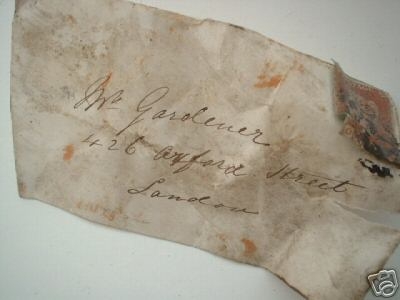 Mr Gardener
426 Oxford Street
London